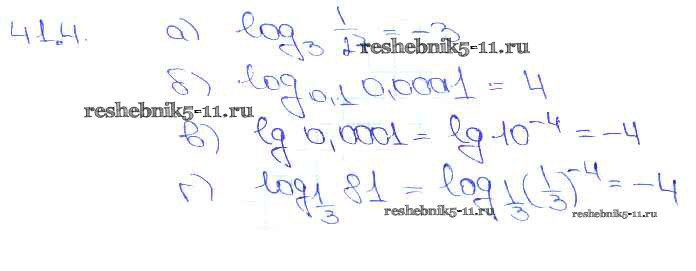 41.4. а) log₃ 1/27 = -3
reshebnik5-11.ru
б) log₀,₁ 0,0001 = 4
reshebnik5-11.ru
в) lg 0,0001 = lg 10⁻⁴ = -4
г) log₁/₃ 81 = log₁/₃ (1/3)⁻⁴ = -4
reshebnik5-11.ru reshebnik5-11.ru